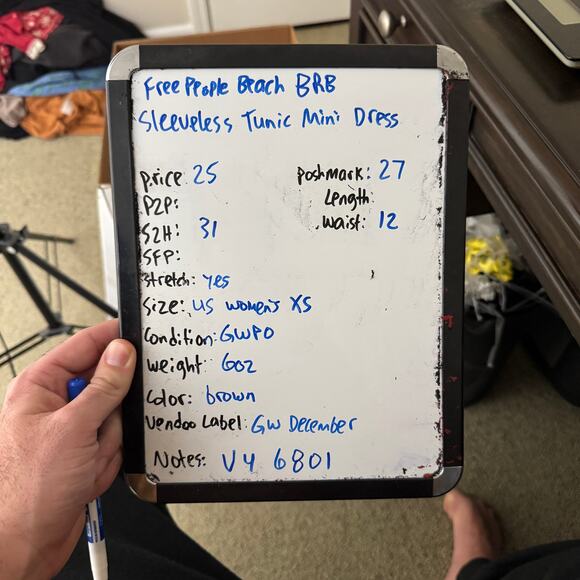 Free People Beach BRB
Sleeveless Tunic Mini Dress
price: 25 Poshmark: 27
P2P: Length:
S2H: 31 Waist: 12
SFP:
Stretch: yes
Size: US women's XS
Condition: GWPO
Weight: 6oz
Color: brown
Vendoo Label: GW December
Notes: V4 6801